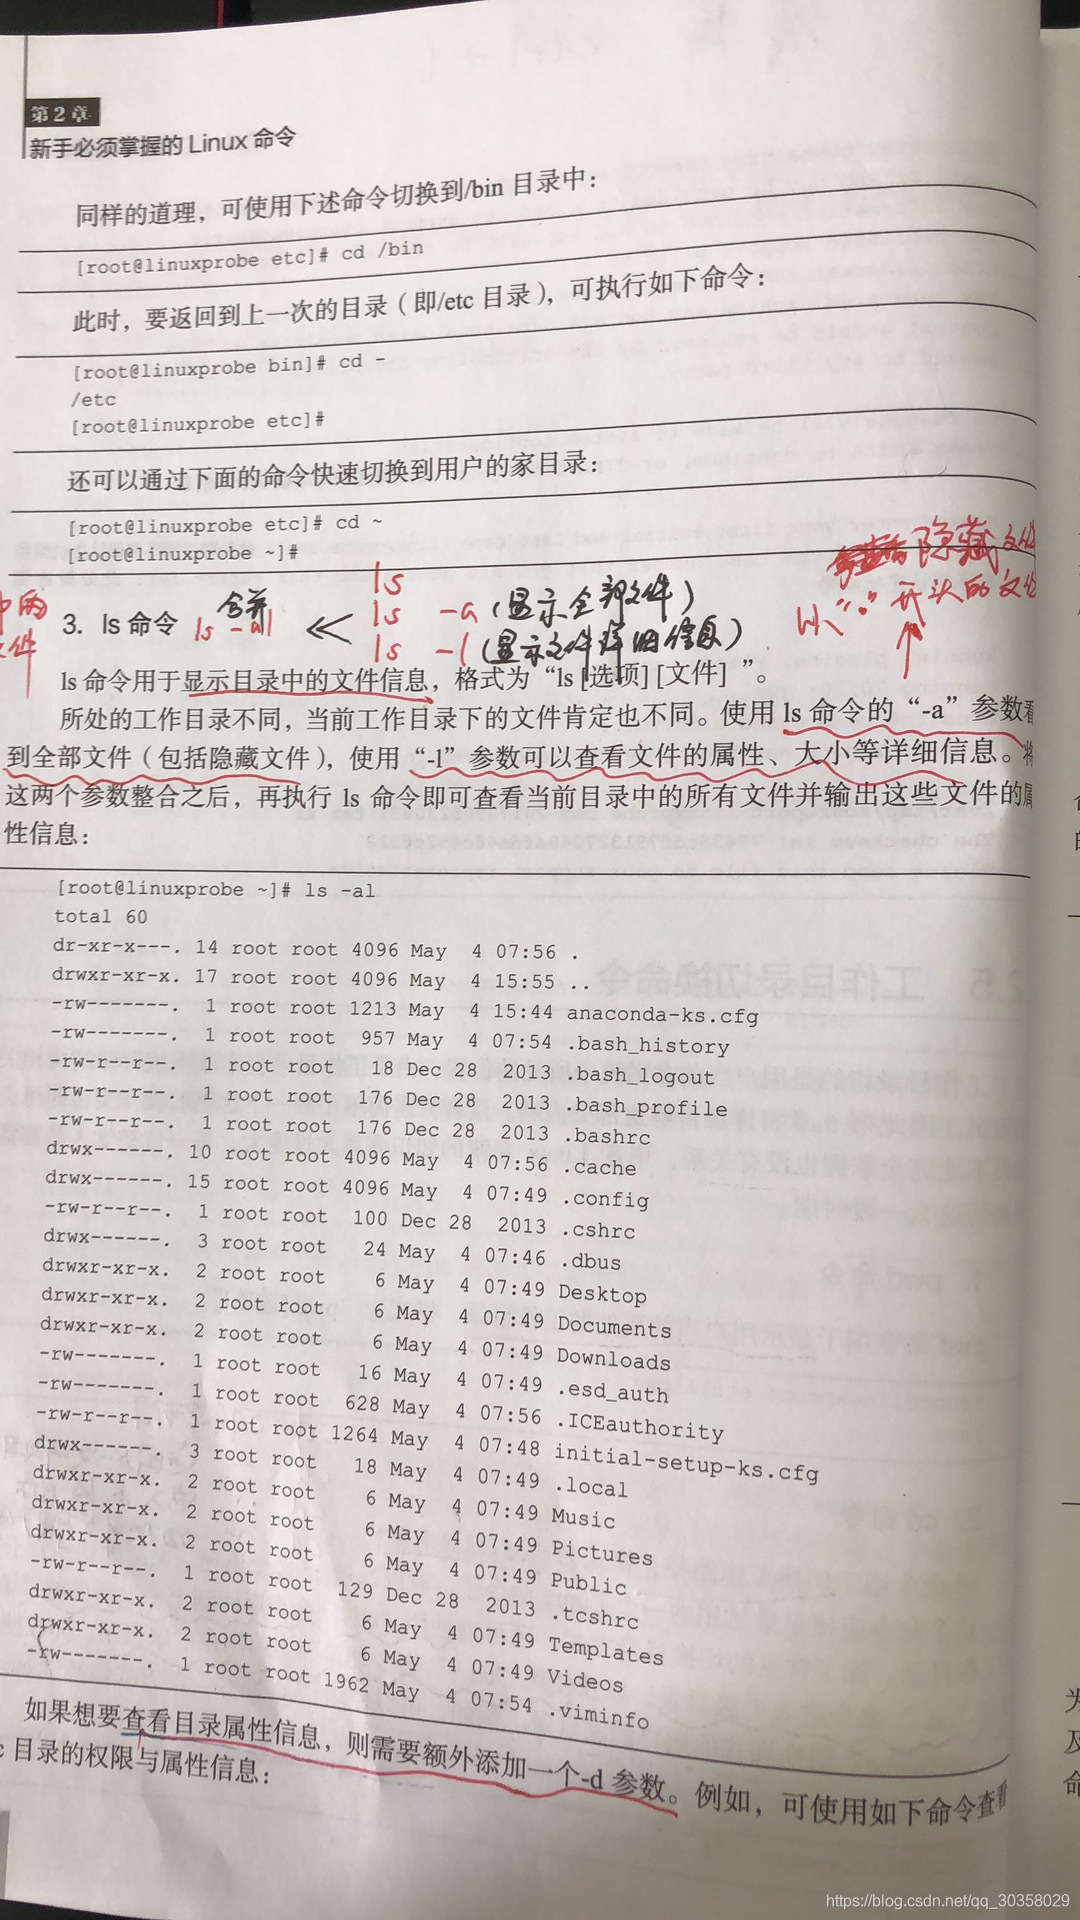 第2章
新手必须掌握的 Linux 命令
同样的道理，可使用下述命令切换到/bin 目录中：
[root@linuxprobe etc]# cd /bin
此时，要返回到上一次的目录（即/etc 目录），可执行如下命令：
[root@linuxprobe bin]# cd -
/etc
[root@linuxprobe etc]#
还可以通过下面的命令快速切换到用户的家目录：
[root@linuxprobe etc]# cd ~
[root@linuxprobe ~]#
隐藏文件
以“.”开头的文件
ls
ls -a（显示全部文件）
ls -l（显示文件详细信息）
合并
ls -al
3. ls 命令
ls 命令用于显示目录中的文件信息，格式为“ls [选项] [文件] ”。
所处的工作目录不同，当前工作目录下的文件肯定也不同。使用 ls 命令的“-a”参数看
到全部文件（包括隐藏文件），使用“-l”参数可以查看文件的属性、大小等详细信息。将
这两个参数整合之后，再执行 ls 命令即可查看当前目录中的所有文件并输出这些文件的属
性信息：
[root@linuxprobe ~]# ls -al
total 60
dr-xr-x---. 14 root root 4096 May 4 07:56 .
drwxr-xr-x. 17 root root 4096 May 4 15:55 ..
-rw-------. 1 root root 1213 May 4 15:44 anaconda-ks.cfg
-rw-------. 1 root root 957 May 4 07:54 .bash_history
-rw-r--r--. 1 root root 18 Dec 28 2013 .bash_logout
-rw-r--r--. 1 root root 176 Dec 28 2013 .bash_profile
-rw-r--r--. 1 root root 176 Dec 28 2013 .bashrc
drwx------. 10 root root 4096 May 4 07:56 .cache
drwx------. 15 root root 4096 May 4 07:49 .config
-rw-r--r--. 1 root root 100 Dec 28 2013 .cshrc
drwx------. 3 root root 24 May 4 07:46 .dbus
drwxr-xr-x. 2 root root 6 May 4 07:49 Desktop
drwxr-xr-x. 2 root root 6 May 4 07:49 Documents
drwxr-xr-x. 2 root root 6 May 4 07:49 Downloads
-rw-------. 1 root root 16 May 4 07:49 .esd_auth
-rw-------. 1 root root 628 May 4 07:56 .ICEauthority
-rw-r--r--. 1 root root 1264 May 4 07:48 initial-setup-ks.cfg
drwx------. 3 root root 18 May 4 07:49 .local
drwxr-xr-x. 2 root root 6 May 4 07:49 Music
drwxr-xr-x. 2 root root 6 May 4 07:49 Pictures
drwxr-xr-x. 2 root root 6 May 4 07:49 Public
-rw-r--r--. 1 root root 129 Dec 28 2013 .tcshrc
drwxr-xr-x. 2 root root 6 May 4 07:49 Templates
drwxr-xr-x. 2 root root 6 May 4 07:49 Videos
-rw-------. 1 root root 1962 May 4 07:54 .viminfo
如果想要查看目录属性信息，则需要额外添加一个-d 参数。例如，可使用如下命令查看
c 目录的权限与属性信息：
https://blog.csdn.net/qq_30358029